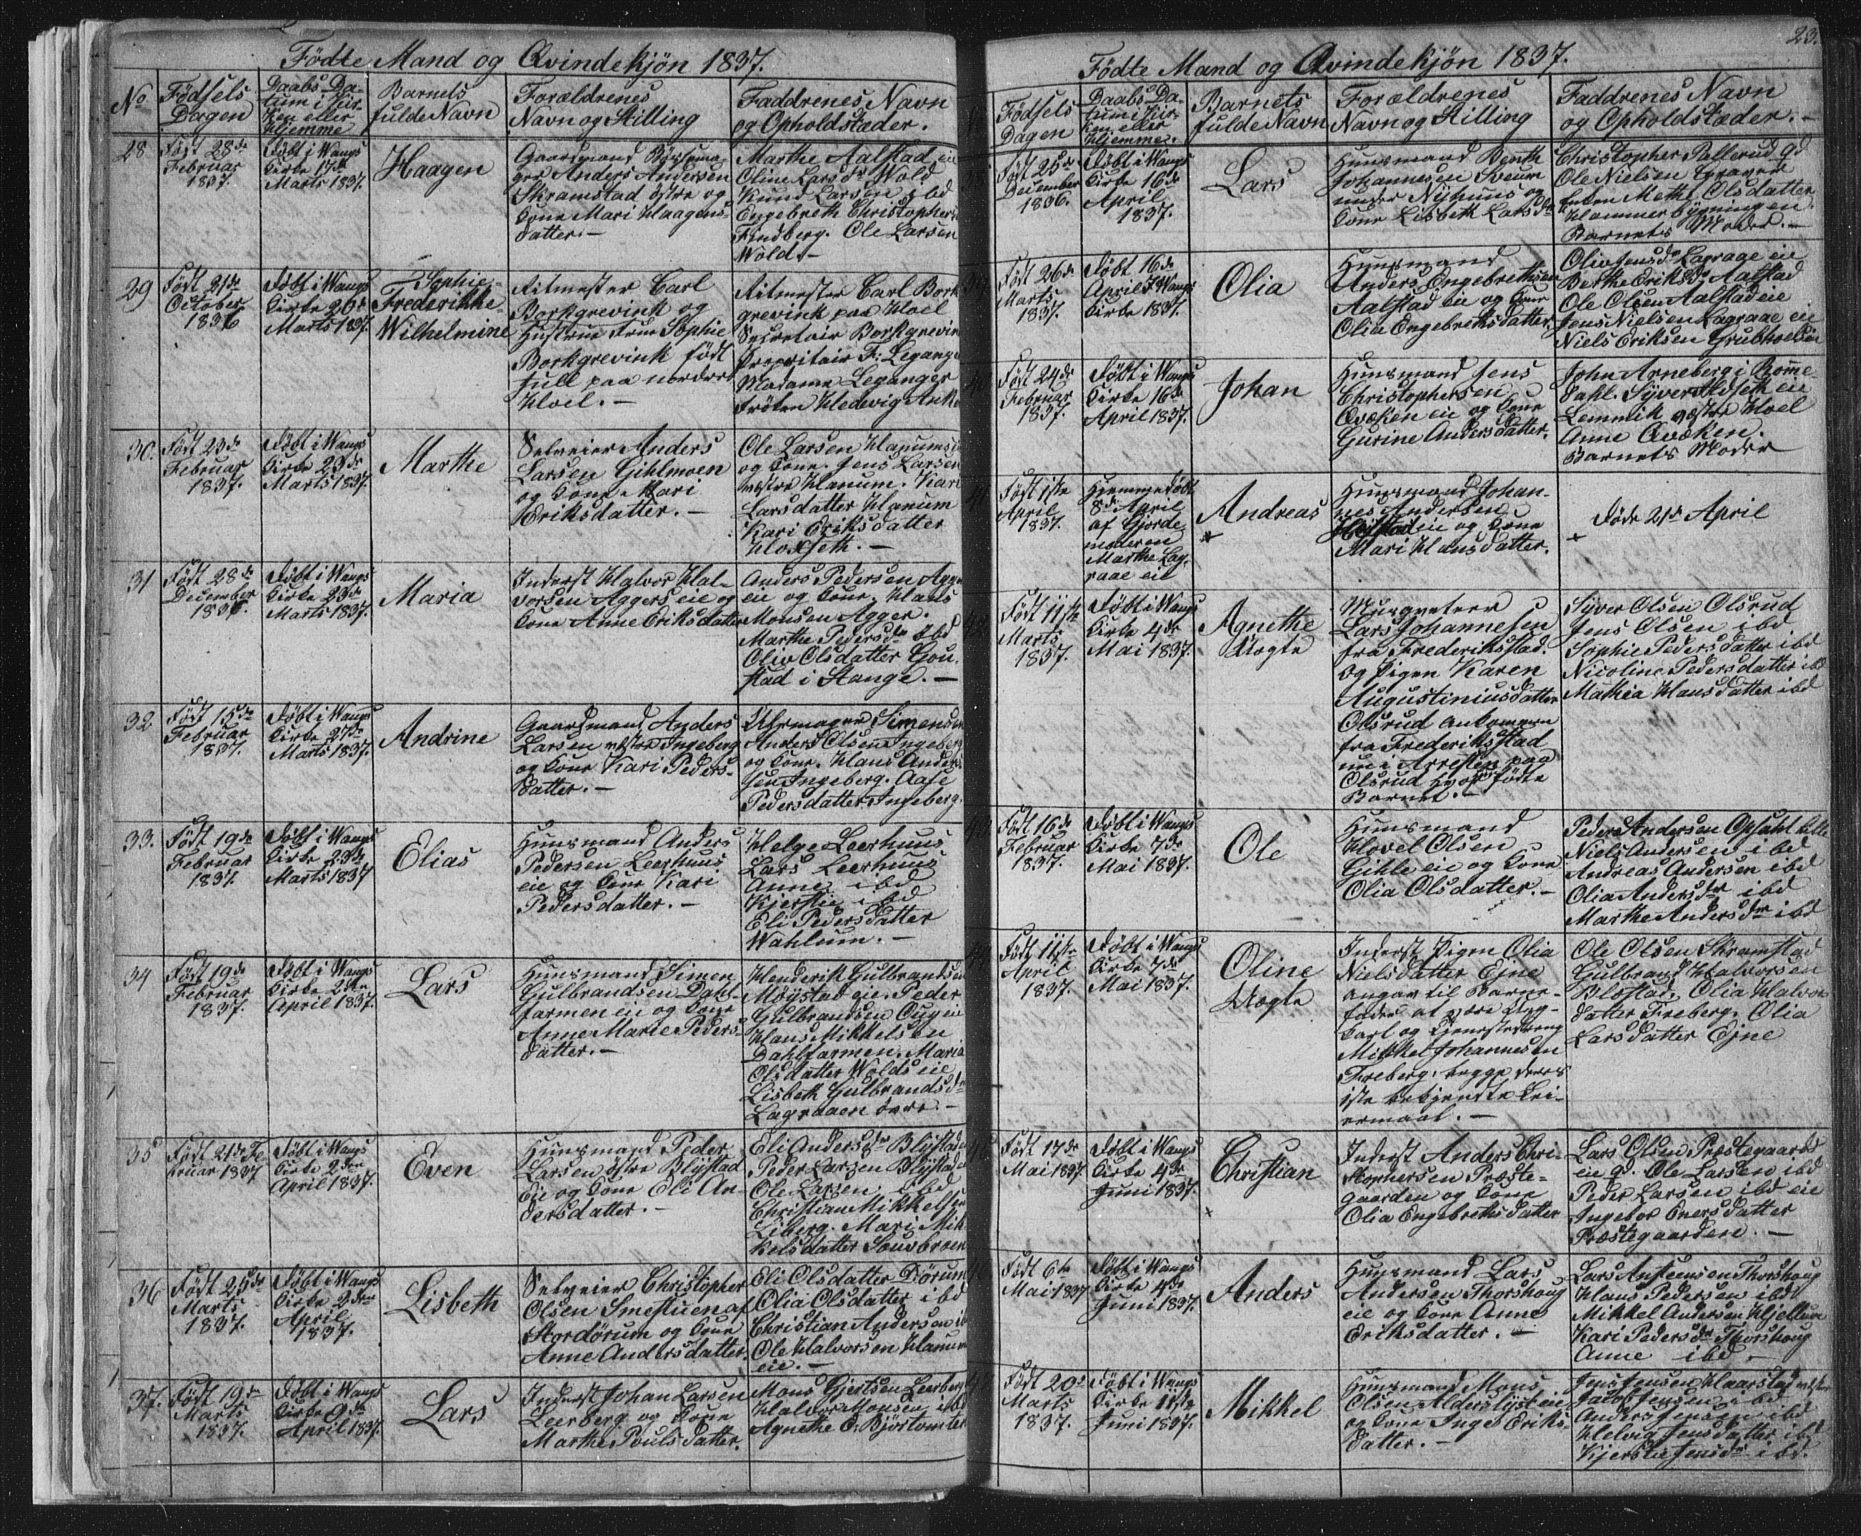 Fødte Mand og Qvindekjøn 1837.
No
Fødsels
Dagen
Daabs Da-
tum i Kir-
ken eller
Hjemme
Barnets
fulde Navn
Forældrenes
Navn og Stilling
Faddrenes Navn
og Opholdstæder.
28
Født 28de
Februar
1837.
Døbt i Wangs
Kirke 17de
Marts 1837.
Haagen
Gaardmand
Anders Andersen
Skramstad østre og
Kone Mari Haagens
datter. —
Marthe Aalstad eie
Oline Larsdr Wold
Knud Larsen ibd
Engebreth Christophers
Findberg. Ole Larsen
Wold. —
29
Født 21de
October
1836
Døbt i Wangs
Kirke 26de
Marts 1837.
Sophie
Frederikke
Wilhelmine
Ritmester Carl
Borkgrevink og
Hustrue Frue Sophie
Borkgrevink født
Jull paa nordre
Hoel. —
Ritmester Carl Bork
grevink paa Hoel
Secretair Borkgrevin
Propritair F: Leganger
Madame Leganger
Frøken Hedevig Anke
30.
Født 23de
Februar
1837.
Døbt i Wangs
Kirke 23de
Marts 1837.
Marthe
Selveier Anders
Larsen Gihlmoen
og Kone Kari
Eriksdatter. —
Ole Larsen Hanum
og Kone. Jens Larsen
vestre Hanum. Kari
Larsdatter Hanum
Kari Eriksdatter
Hoxseth. —
31
Født 28de
December
1836.
Døbt i Wangs
Kirke 23de
Marts 1837.
Maria
Inderst Halvor Hal-
vorsen Aggers eie og
Kone Anne Eriksdatter
Anders Pedersen Agger
eie og Kone. Hans
Monsen Agger.
Marthe Pedersdr ibd
Oliv Olsdatter Gou-
stad i Stange. —
32
Født 15de
Februar
1837.
Døbt i Wangs
Kirke 27de
Marts 1837.
Andrine
Gaardmand Anders
Larsen vestre Ingeberg
og Kone Kari Peders-
datter. —
Uhrmager Simensen
Anders Olsen Ingeberg
og Kone. Hans Anders
sen Ingeberg. Aase
Pedersdatter Ingeberg.
33.
Født 19de
Februar
1837.
Døbt i Wangs
Kirke 23de
Marts 1837
Elias
Huusmand Anders
Pedersen Leerhuus
eie og Kone Kari
Pedersdatter. —
Helge Leerhuus
Lars Leerhuus
Anne ibd
Kjersti ibd
Eli Pedersdatter
Wahlum. —
34
Født 19de
Februar
1837.
Døbt i Wangs
Kirke 2den
April 1837.
Lars
Huusmand Simen
Gulbrandsen Dahl-
farmen eie og Kone
Anne Marie Peders-
datter. —
Henderik Gulbrandsen
Møystad eie. Peder
Gulbrandsen
Hans Mikkelsen
Dahlfarmen. Maria
Olsdatter Wolds eie
Lisbeth Gulbrandsdr
Lagraaen øvre. —
35
Født 21de Fe
bruar 1837
Døbt i Wangs
Kirke 2den
April 1837.
Even
Huusmand Peder
Larsen østre Blystad
Eie og Kone Eli An-
dersdatter. —
Eli Andersdr Blystad
Peder Larsen Blystad
Ole Larsen ibd
Christian Mikkelsen
Liberg. Mari Mik
kelsdatter
36
Født 25de
Marts
1837.
Døbt i Wangs
Kirke 2den
April
1837.
Lisbeth
Selveier Christopher
Olsen Smestuen af
Stordørum og Kone
Anne Andersdatter.
Eli Olsdatter Dørum
Olia Olsdatter ibd
Christian Andersen ibd
Ole Halvorsen Hanum
eie. —
37.
Født 19de
Marts
1837.
Døbt i Wangs
Kirke 9de
April 1837.
Lars
Inderst Johan Larsen
Leerberg og Kone
Marthe Poulsdatter.
Mons Gjertsen Leerberg
Halvor Monsen ibd
Agnethe
Fødte Mand og Qvindekjøn 1837.
23.
Fødsels
Dagen
Daabs Da-
tum i Kir-
ken eller
Hjemme.
Barnets
fulde Navn
Forældrenes
Navn og Stilling
Faddrenes Navn
og Opholdstæder. —
Født 25de
December
1836.
Døbt i Wangs
Kirke 16de
April
1837.
Lars
Huusmand Benth
Johannesen Sveum
Nyhuus og
Kone Lisbeth Larsdr
Christopher Pallerud gd
Ole Nielsen
Methe Olsdatter
Hammersbygningen.
Barnets Moder. —
Født 26de
Marts
1837.
Døbt 16de
April i Wangs
Kirke 1837.
Olia
Huusmand
Anders Engebrethsen
Aalstad eie og Kone
Olia Engebretsdatter.
Oliv Jensdr Lagrage eie
Berthe Eriksdr Aalstad
Ole Olsen Aalstad eie
Jens Nielsen Lagraae eie
Niels Eriksen Grubholsen
Født 24de
Februar
1837.
Døbt i Wangs
Kirke 16de
April 1837.
Johan
Huusmand Jens
Christophersen
Qvæken eie og Kone
Gurine Andersdatter.
John Arneberg i Romme
dahl. Syver Alfseth eie
Lemmik vestre Hoel
Anne Qvæken.
Barnets Moder
Født 1ste
April
1837.
Hjemmedøbt
8de April
af Gjorde
moderen
Marthe Lag-
raae eie
Andreas
*
Huusmand Johan-
nes Andersen
eie og Kone
Mari Hansdatter.
Døde 21de April
+
Født 11te
Marts
1837.
Døbt i Wangs
Kirke 4de
Mai 1837.
Agnethe
Uægte
Musqveteer
Lars Johannesen
fra Frederikstad.
og Pigen Karen
Augustiniusdatter
Olsrud ankommen
fra Frederikstad
nu i Arresten paa
Olsrud hvor fødte
Barnet. —
Syver Olsen Olsrud
Jens Olsen ibd
Sophie Pedersdatter ibd
Nicoline Pedersdatter ibd
Mathia Hansdatter ibd
Født 16de
Februar
1837.
Døbt i Wangs
Kirke 7de
Mai 1837.
Ole
Huusmand
Hovel Olsen
Gihle eie og Kone
Olia Olsdatter. —
Peder Andersen Opsahl
Niels Andersen ibd
Andreas Andersen ibd
Olia Andersdr ibd
Marthe Andersdr ibd
Født 11te
April
1837.
Døbt i Wangs
Kirke 7de
Mai 1837.
Oline
Uægte
Inderst Pigen Olia
Nielsdatter Ejne
angav til Barne-
fader at være Ung-
karl og Tjenestedreng
Mikkel Johannesen
Freberg; begge deres
1ste bekjendte Lei-
ermaal. —
Ole Olsen Skramstad
Gulbrand Halvorsen
Blæstad, Olia Halvors
datter Freberg. Olia
Larsdatter Ejne
Født 17de
Mai 1837.
Døbt i Wangs
Kirke 4de
Juni 1837.
Christian
+
Inderst Anders Chri-
stophersen Præste-
gaarden og Kone
Olia Engebretsdatter
Lars Olsen Præstegaards
eie gd. Ole Larsen ibd
Peder Larsen ibd eie
Ingebor Enersdatter
Præstegaarden. —
Født 6te
Mai 1837
Døbt i Wangs
Kirke 4de
Juni 1837.
Anders
Huusmand Lars
Andersen Thorshoug
eie og Kone Anne
Eriksdatter. —
Lars Anstensen Thorshoug
Hans Pedersen ibd
Mikkel Andersen Hjellum
Kari Pedersdr Thorshoug
Anne ibd —
Født 20de
Marts
1837.
Døbt i Wangs
Kirke 11te
Juni 1837.
Mikkel
Huusmand Mons
Olsen Alderslyst eie
og Kone Inger Eriks-
datter. —
Jens Jensen Haarstad
Jacob Jensen ibd.
Anders Jensen ibd
Helvig Jensdatter ibd
Kjerstie Jensdr ibd.